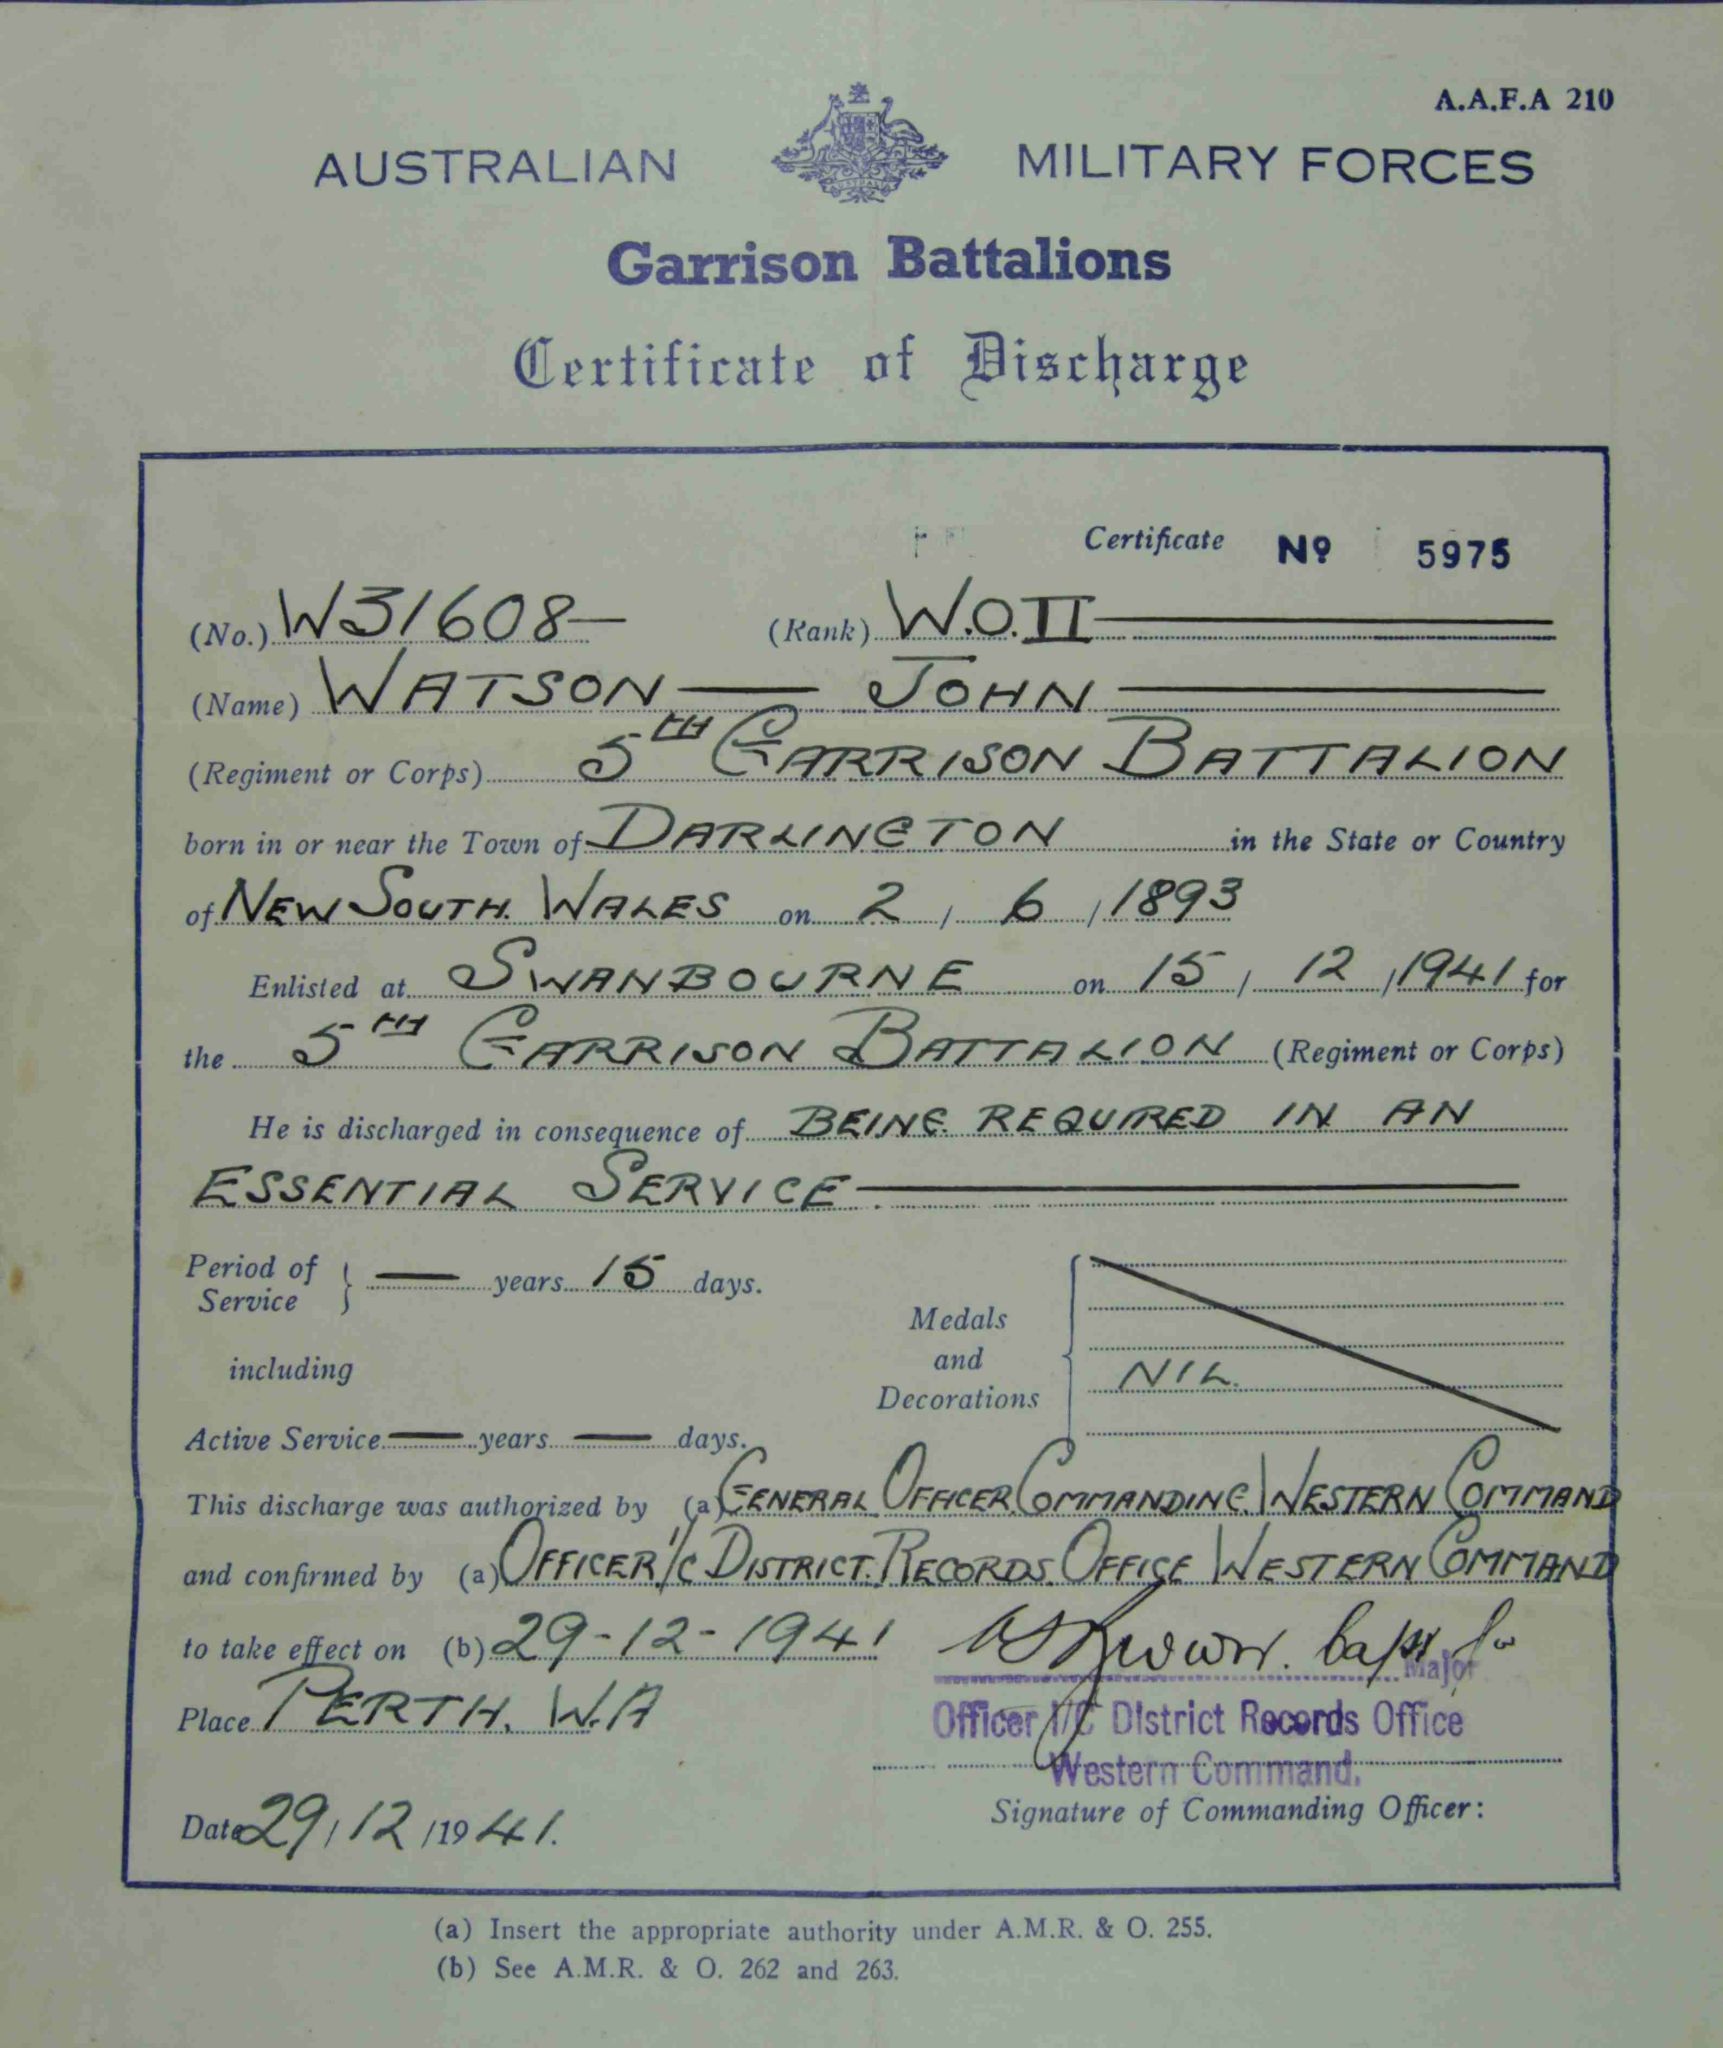 A.A.F.A 210
AUSTRALIAN MILITARY FORCES
AUSTRALIA
Garrison Battalions
Certificate of Discharge
Certificate No 5975
(No.) W31608 (Rank) W.O.II
(Name) WATSON JOHN
(Regiment or Corps) 5TH GARRISON BATTALION
born in or near the Town of DARLINGTON in the State or Country
of NEW SOUTH WALES on 2 / 6 / 1893
Enlisted at SWANBOURNE on 15 / 12 / 1941 for
the 5TH GARRISON BATTALION (Regiment or Corps)
He is discharged in consequence of BEING REQUIRED IN AN
ESSENTIAL SERVICE
Period of Service } — years 15 days.
including
Medals and Decorations { NIL.
Active Service — years — days.
This discharge was authorized by (a) GENERAL OFFICER COMMANDING WESTERN COMMAND
and confirmed by (a) OFFICER I/C DISTRICT RECORDS OFFICE WESTERN COMMAND
to take effect on (b) 29-12-1941 Capt for
Major
Place PERTH. W.A
Officer I/C District Records Office
Western Command.
Signature of Commanding Officer:
Date 29/12/1941.
(a) Insert the appropriate authority under A.M.R. & O. 255.
(b) See A.M.R. & O. 262 and 263.